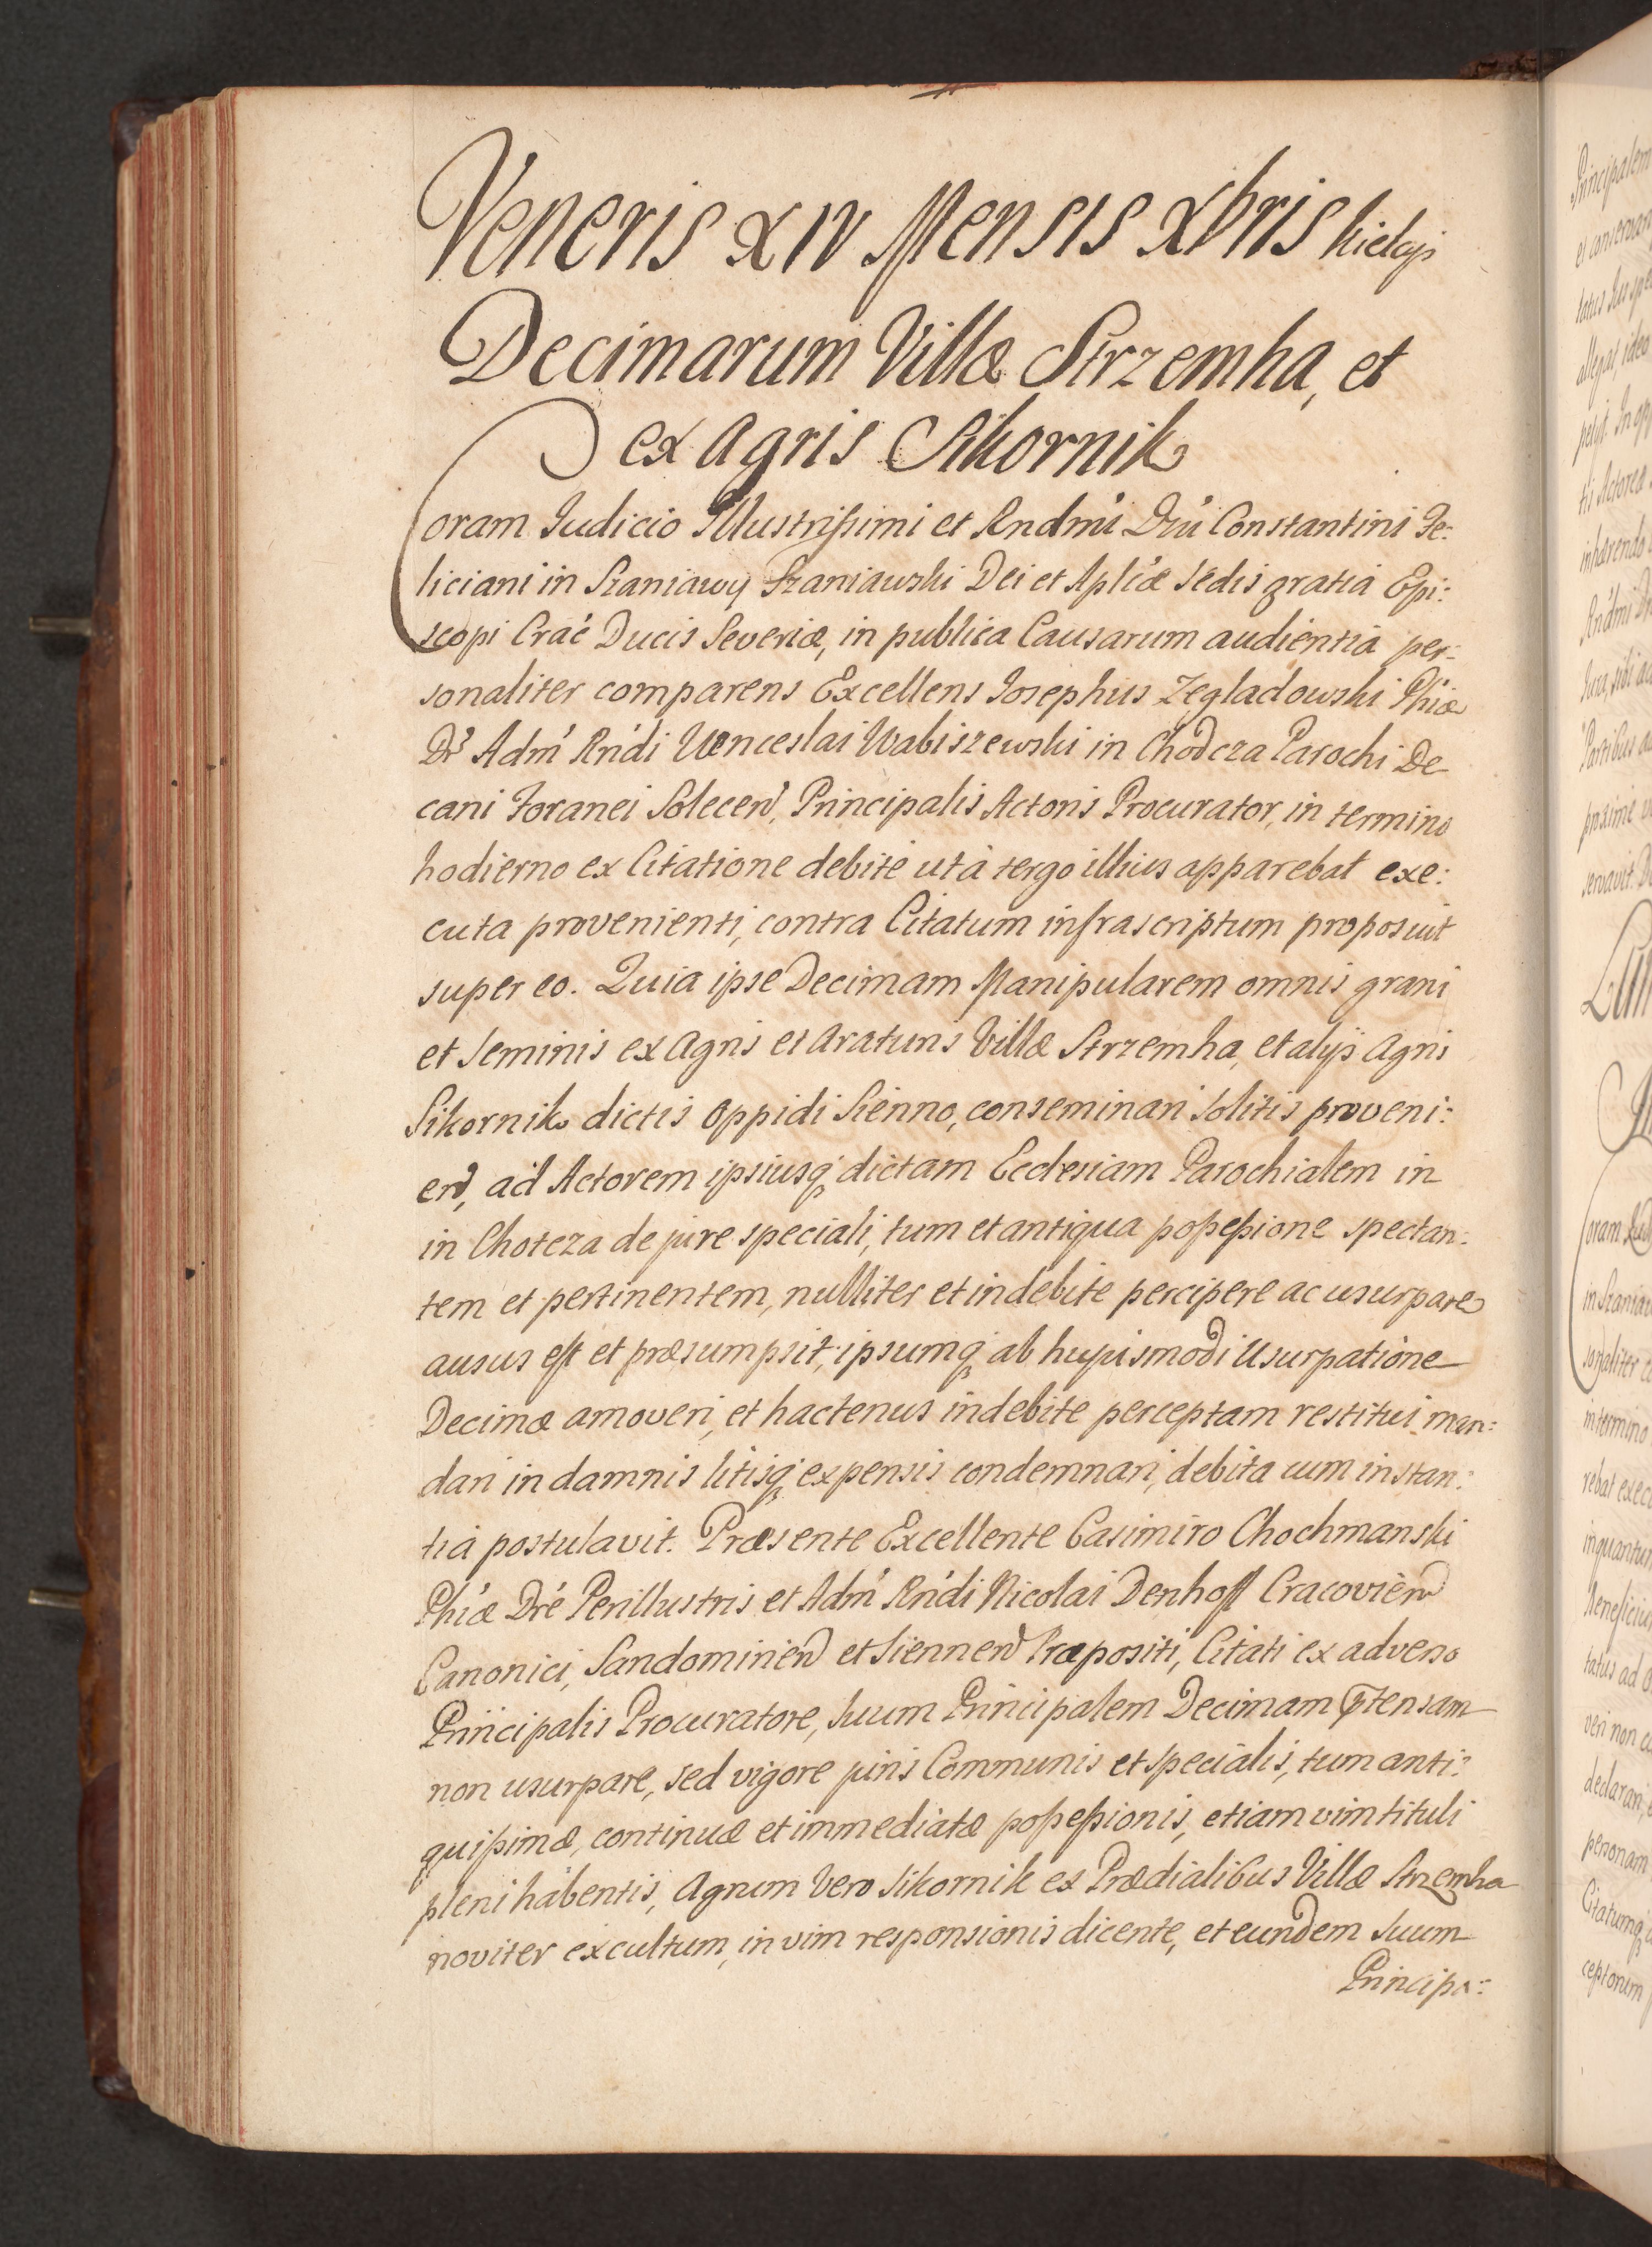 Veneris XIV Mensis Xbris Kielcijs
Decimarum Villæ Strzemha, et
ex Agris Sikornik
Coram Judicio Illustrissimi et Rndmi Dni Constantini Fe:
liciani in Szaniawy Szaniawski Dei et Aplicæ Sedis gratia Epi:
scopi Crac Ducis Severiæ, in publica Causarum audientia per:
sonaliter comparens Excellens Josephus Zegladowski Phiæ
Dr Adm Rndi Venceslai Wabiszewski in Chodcza Parochi De
cani Foranei Solecen, Principalis Actoris Procurator, in termino
hodierno ex Citatione debite ut à tergo illius apparebat exe:
cuta provenienti, contra Citatum infrascriptum proposuit
super eo. Quia ipse Decimam Manipularem omnis grani
et seminis ex Agris et Araturis Villæ Strzemha, et alijs Agris
Sikornik dictis Oppidi Sienno, conseminari solitis proveni:
en, ad Actorem ipsiusq dictam Ecclesiam Parochialem in
in Chotcza de jure speciali, tum et antiqua possessione spectan:
tem et pertinentem, nulliter et indebite percipere ac usurpare
ausus est et præsumpsit, ipsumq ab hujusmodi Usurpatione
Decimæ amoveri, et hactenus indebite perceptam restitui man:
dari in damnis litisq expensis condemnari, debita cum instan:
tia postulavit. Præsente Excellente Casimiro Chochmanski
Phiæ Dre Perillustris et Adm Rndi Nicolai Denhoff Cracovien
Canonici, Sandomirien et Siennen Præpositi, Citati ex adverso
Principalis Procuratore, suum Principalem Decimam ptensam
non usurpare, sed vigore juris Communis et specialis, tum anti:
quissimæ, continuæ et immediatæ possessionis, etiam vim tituli
pleni habentis, Agrum vero Sikornik ex Prædialibus Villæ Strzemha
noviter excultum, in vim responsionis dicente, et eundem suum
Principa: